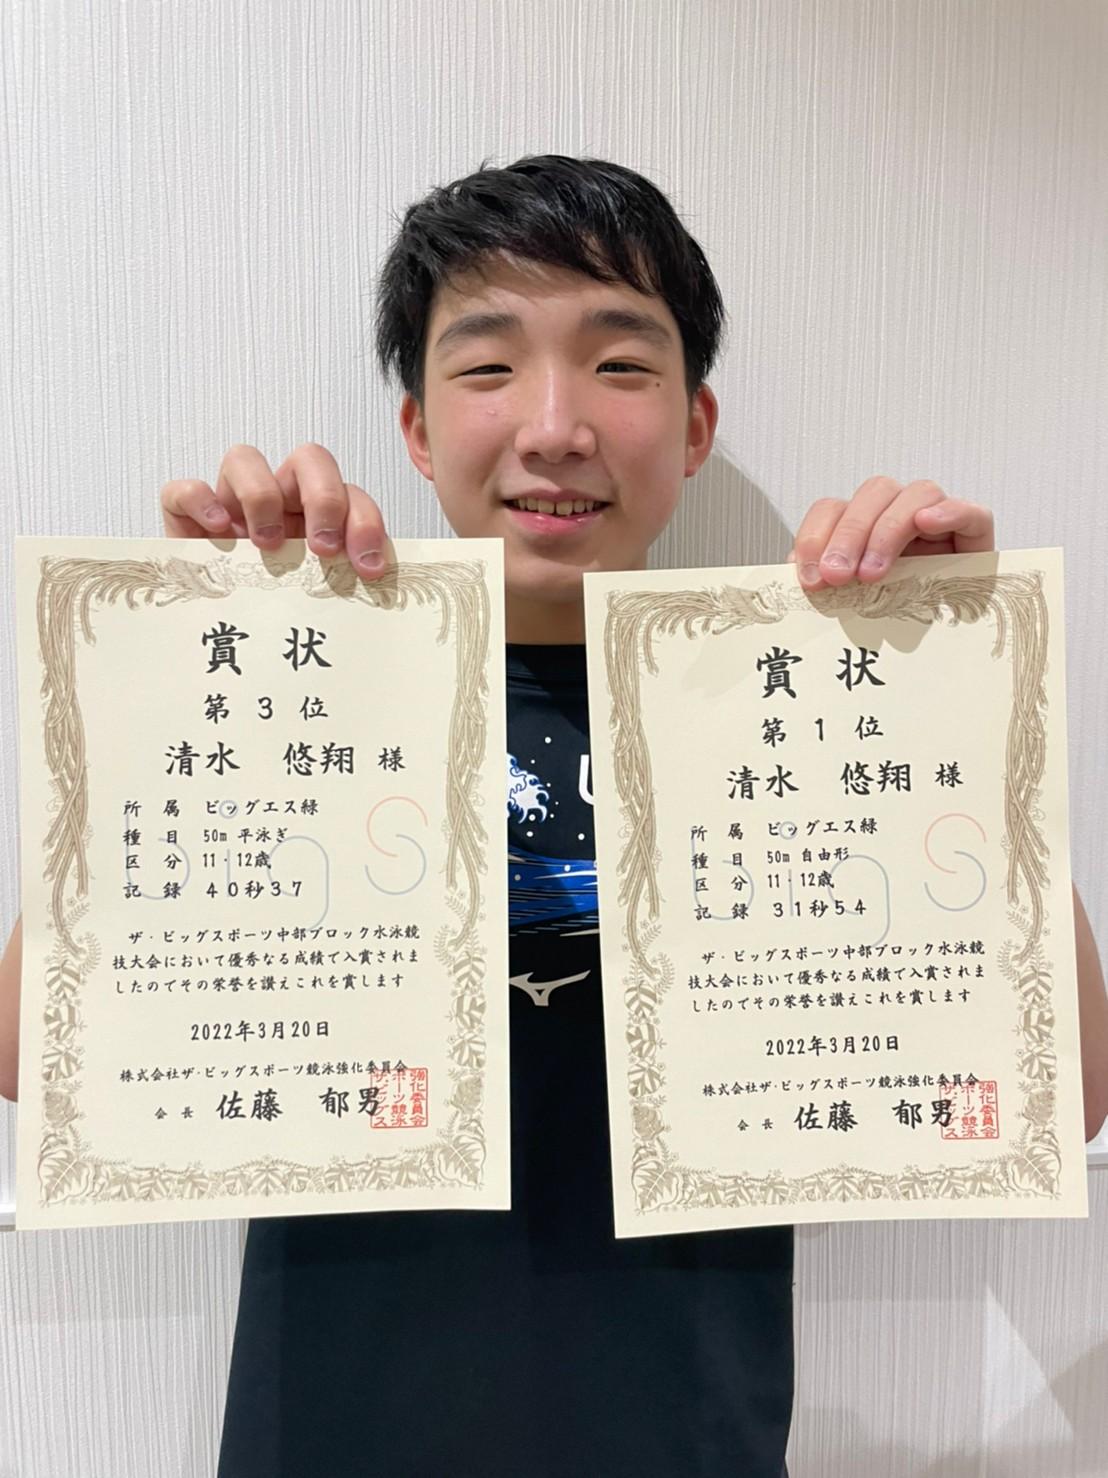 賞 状
第 3 位
清水 悠翔 様
所 属 ビッグエス緑
種 目 50m 平泳ぎ
区 分 11・12歳
記 録 40秒37
ザ・ビッグスポーツ中部ブロック水泳競
技大会において優秀なる成績で入賞されま
したのでその栄誉を讃えこれを賞します
2022年3月20日
株式会社ザ・ビッグスポーツ競泳強化委員会
会 長 佐藤 郁男
ザ・ビッグスポーツ競泳強化委員会
bigS
賞 状
第 1 位
清水 悠翔 様
所 属 ビッグエス緑
種 目 50m 自由形
区 分 11・12歳
記 録 31秒54
ザ・ビッグスポーツ中部ブロック水泳競
技大会において優秀なる成績で入賞されま
したのでその栄誉を讃えこれを賞します
2022年3月20日
株式会社ザ・ビッグスポーツ競泳強化委員会
会 長 佐藤 郁男
ザ・ビッグスポーツ競泳強化委員会
bigS